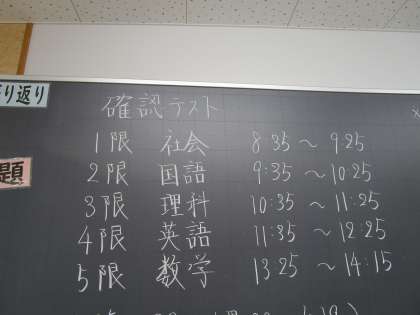 り返り
確認テスト
1限 社会 8:35～9:25
2限 国語 9:35～10:25
題
3限 理科 10:35～11:25
4限 英語 11:35～12:25
5限 数学 13:25～14:15